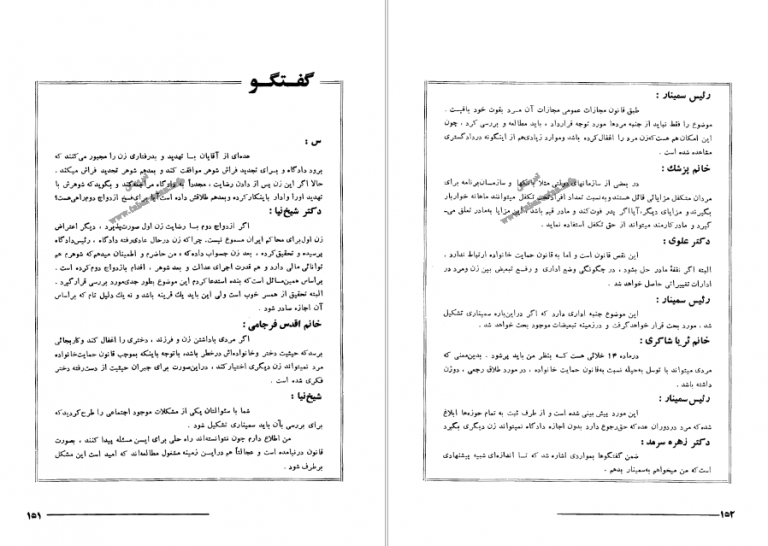 گفتگو
س :
عده‌ای از آقایان با تهدید و بدرفتاری زن را مجبور می‌کنند که
برود دادگاه و برای تجدید فراش شوهر موافقت کند و بعدهم شوهر تجدید فراش میکند .
حالا اگر این زن پس از دادن رضایت ، مجدداً به دادگاه مراجعه‌کند و بگویدکه شوهرش با
تهدید اورا وادار باینکارکرده وبعدهم طلاقش داده است‌آیا برای‌فسخ ازدواج دوم‌راهی‌هست؟
دکتر شیخ‌نیا :
اگر ازدواج دوم با رضایت زن اول صورت‌پذیرد ، دیگر اعتراض
زن اول‌برای محاکم ایران مسموع نیست. چراکه زن درحال عادی‌رفته دادگاه ، رئیس‌دادگاه
پرسیده و تحقیق‌کرده ، بعد زن جواب داده‌که ، من حاضرم و اطمینان میدهم‌که شوهرم هم
توانائی مالی دارد و هم قدرت اجرای عدالت و بعد شوهر ، اقدام بازدواج دوم‌کرده است .
براساس همین‌مسائل است‌که بنده استدعا کردم این موضوع بطور جدی‌مورد بررسی قرارگیرد .
البته تحقیق از همسر خوب است ولی این باید یك قرینه باشد و نه یك دلیل تام که براساس
آن اجازه صادر شود .
خانم اقدس فرجامی :
اگر مردی باداشتن زن و فرزند ، دختری را اغفال کند وکاربجائی
برسدکه حیثیت دختر وخانواده‌اش درخطر باشد، باتوجه باینکه بموجب قانون حمایت‌خانواده
مرد نمیتواند زن دیگری اختیارکند ، دراین‌صورت برای جبران حیثیت از دست‌رفته دختر
فکری شده است .
شیخ‌نیا :
شما با سئوالتان یکی از مشکلات موجود اجتماعی را طرح‌کردیدکه
برای بررسی بآن باید سمیناری تشکیل شود .
من اطلاع دارم چون نتوانسته‌اند راه حلی برای ایسن مسئله پیدا کنند ، بصورت
قانون درنیامده است و عجالتاً هم دراین زمینه مشغول مطالعه‌اند که امید است این مشکل
برطرف شود .
۱۵۱
رئیس سمینار :
طبق قانون مجازات عمومی مجازات آن مرد بقوت خود باقیست .
موضوع را فقط نباید از جنبه مردها مورد توجه قرارداد ، باید مطالعه و بررسی کرد ، چون
این امکان هم هست‌که‌زن مرد را اغفال‌کرده باشد وموارد زیادی‌هم از اینگونه دردادگستری
مشاهده شده است .
خانم پزشك :
در بعضی از سازمانهای دولتی مثلا بانکها و سازمان‌برنامه برای
مردان متکفل مزایائی قائل هستندوبه‌نسبت تعداد افراد تحت تکفل میتوانند ماهانه خواربار
بگیرند و مزایای دیگر، آیااگر پدر فوت‌کند و مادر قیم باشد ، این مزایا به‌مادر تعلق می‌-
گیرد و مادرکارمند میتواند از حق تکفل استفاده نماید .
دکتر علوی :
این نقص قانون است و اما به قانون حمایت خانواده ارتباط ندارد .
البته اگر نفقهٔ مادر حل بشود ، در چگونگی وضع اداری و رفع تبعیض بین زن ومرد در
ادارات تغییراتی حاصل خواهد شد .
رئیس سمینار :
این موضوع جنبه اداری دارد که اگر دراین‌باره سمیناری تشکیل
شد . مورد بحث قرار خواهدگرفت و درزمینه تبعیضات موجود بحث خواهد شد .
خانم ثریا شاکری :
درماده ۱۴ خلائی هست کسه بنظر من باید پرشود . بدین‌معنی که
مردی میتواند با توسل به‌حیله نسبت به‌قانون حمایت خانواده ، در مورد طلاق رجعی ، دوزن
داشته باشد .
رئیس سمینار :
این مورد پیش بینی شده است و از طرف ثبت به تمام حوزه‌ها ابلاغ
شده‌که مرد دردوران عده‌که حق‌رجوع دارد بدون اجازه دادگاه نمیتواند زن دیگری بگیرد
دکتر زهره سرمد :
ضمن گفتگوها بمواردی اشاره شد که تسا اندازه‌ای شبیه پیشنهادی
است‌که من میخواهم به‌سمینار بدهم .
۱۵۲